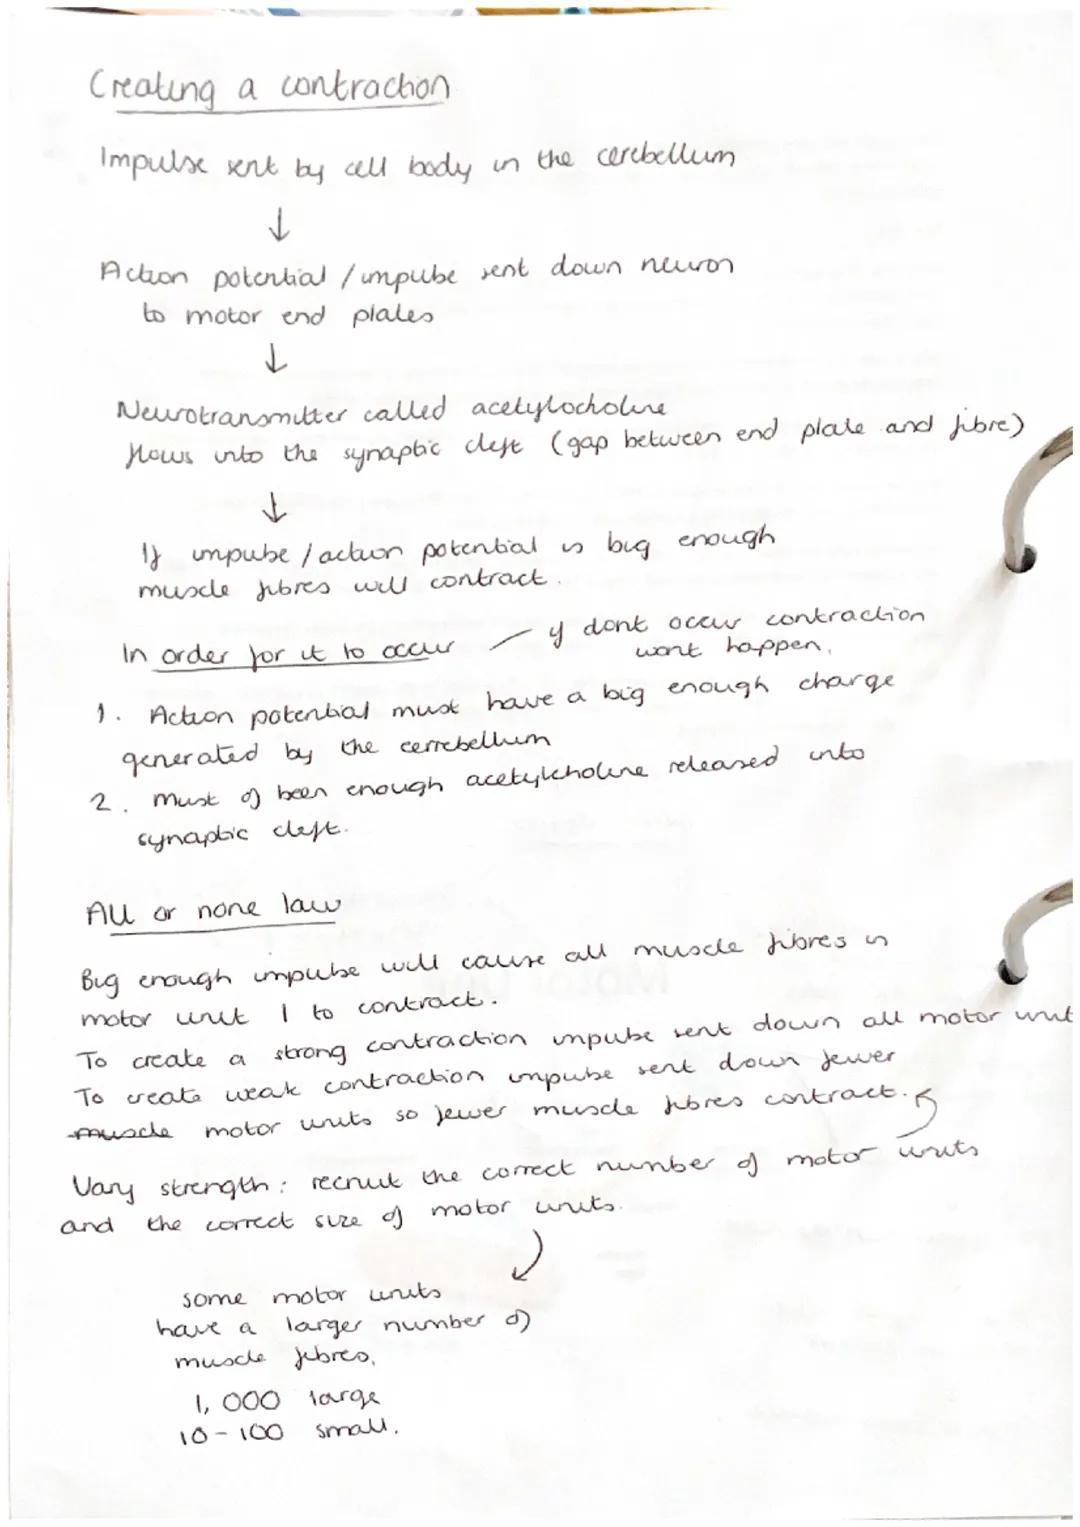 Creating a contraction
Impulse sent by cell body in the cerebellum
↓
Action potential / impulse sent down neuron
to motor end plates
↓
Neurotransmitter called acetylocholine
flows into the synaptic cleft (gap between end plate and fibre)
↓
If impulse / action potential is big enough
muscle fibres will contract.
In order for it to occur — if dont occur contraction
wont happen.
1. Action potential must have a big enough charge
generated by the cerrebellum
2. must of been enough acetylcholine released into
synaptic cleft.
All or none law
Big enough impulse will cause all muscle fibres in
motor unit 1 to contract.
To create a strong contraction impulse sent down all motor unit
To create weak contraction impulse sent down fewer
muscle motor units so fewer muscle fibres contract.
Vary strength: recruit the correct number of motor units
and the correct size of motor units.
some motor units
have a larger number of
muscle fibres.
1,000 large
10-100 small.